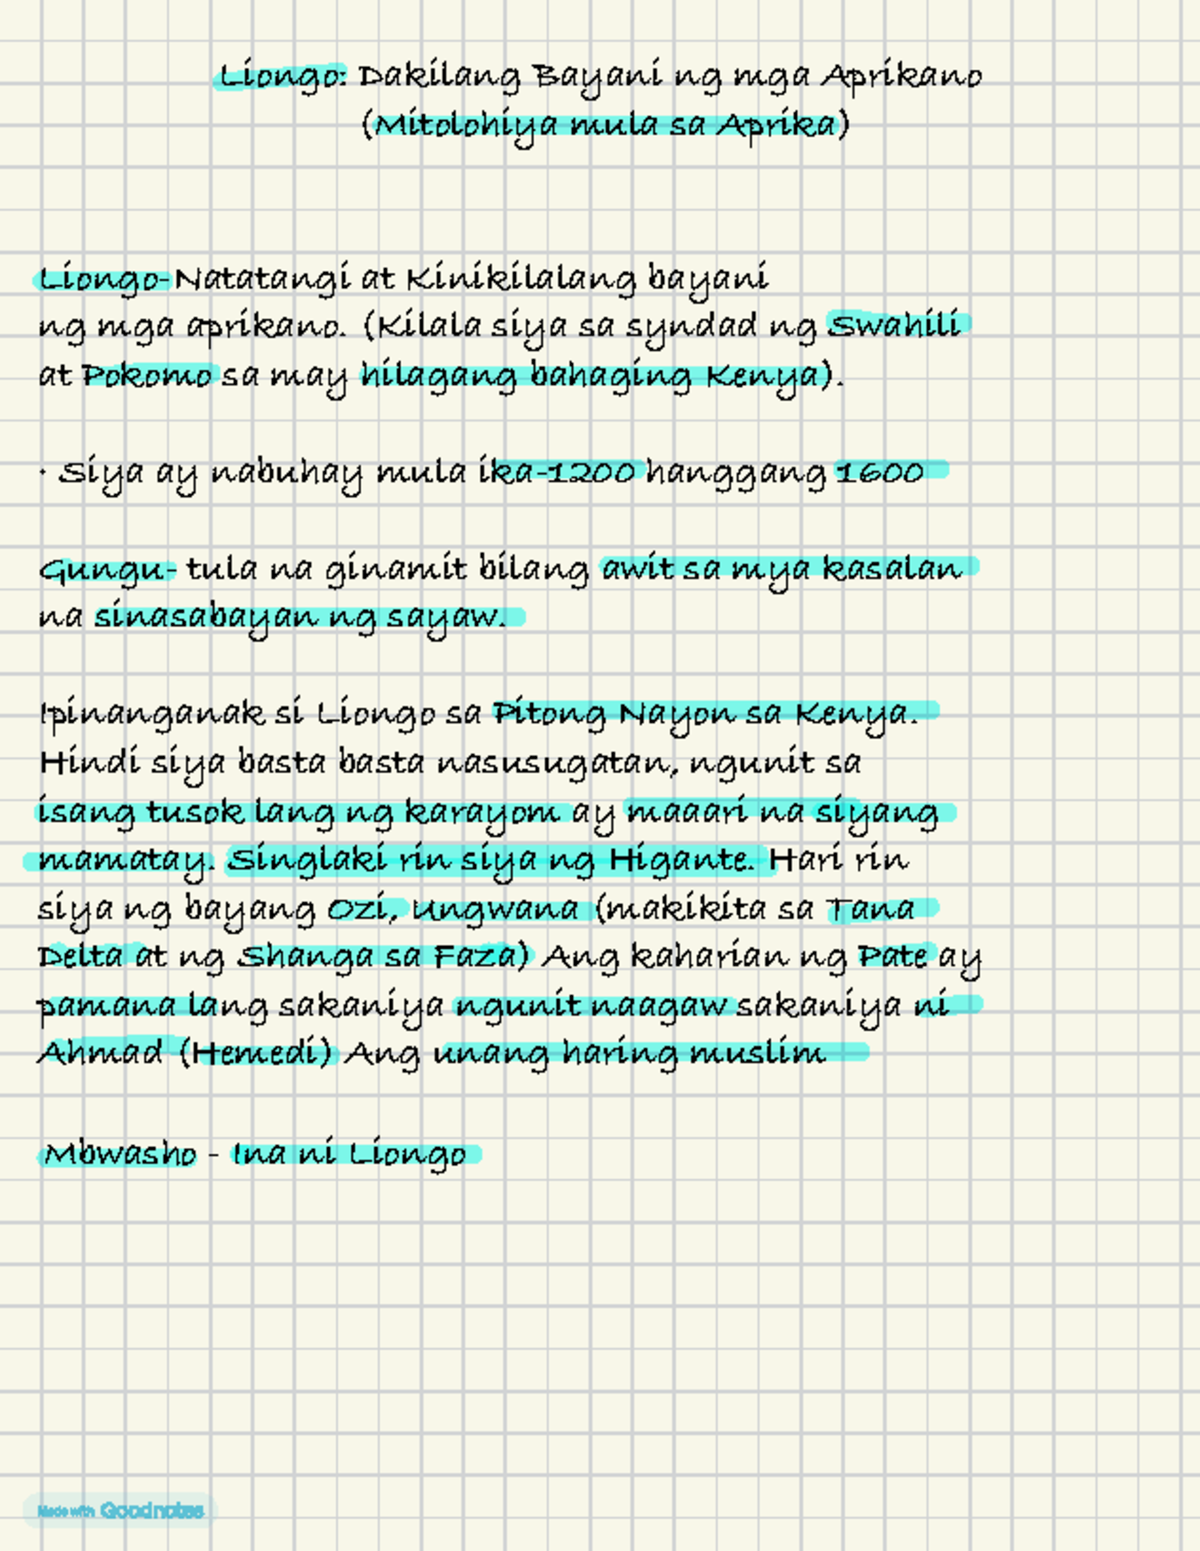 Liongo: Dakilang Bayani ng mga Aprikano
(Mitolohiya mula sa Aprika)
Liongo-Natatangi at Kinikilalang bayani
ng mga aprikano. (Kilala siya sa syndad ng Swahili
at Pokomo sa may hilagang bahaging Kenya).
· Siya ay nabuhay mula ika-1200 hanggang 1600
Gungu- tula na ginamit bilang awit sa mya kasalan
na sinasabayan ng sayaw.
Ipinanganak si Liongo sa Pitong Nayon sa Kenya.
Hindi siya basta basta nasusugatan, ngunit sa
isang tusok lang ng karayom ay maaari na siyang
mamatay. Singlaki rin siya ng Higante. Hari rin
siya ng bayang Ozi, Ungwana (makikita sa Tana
Delta at ng Shanga sa Faza) Ang kaharian ng Pate ay
pamana lang sakaniya ngunit naagaw sakaniya ni
Ahmad (Hemedi) Ang unang haring muslim
Mbwasho - Ina ni Liongo
Made with Goodnotes